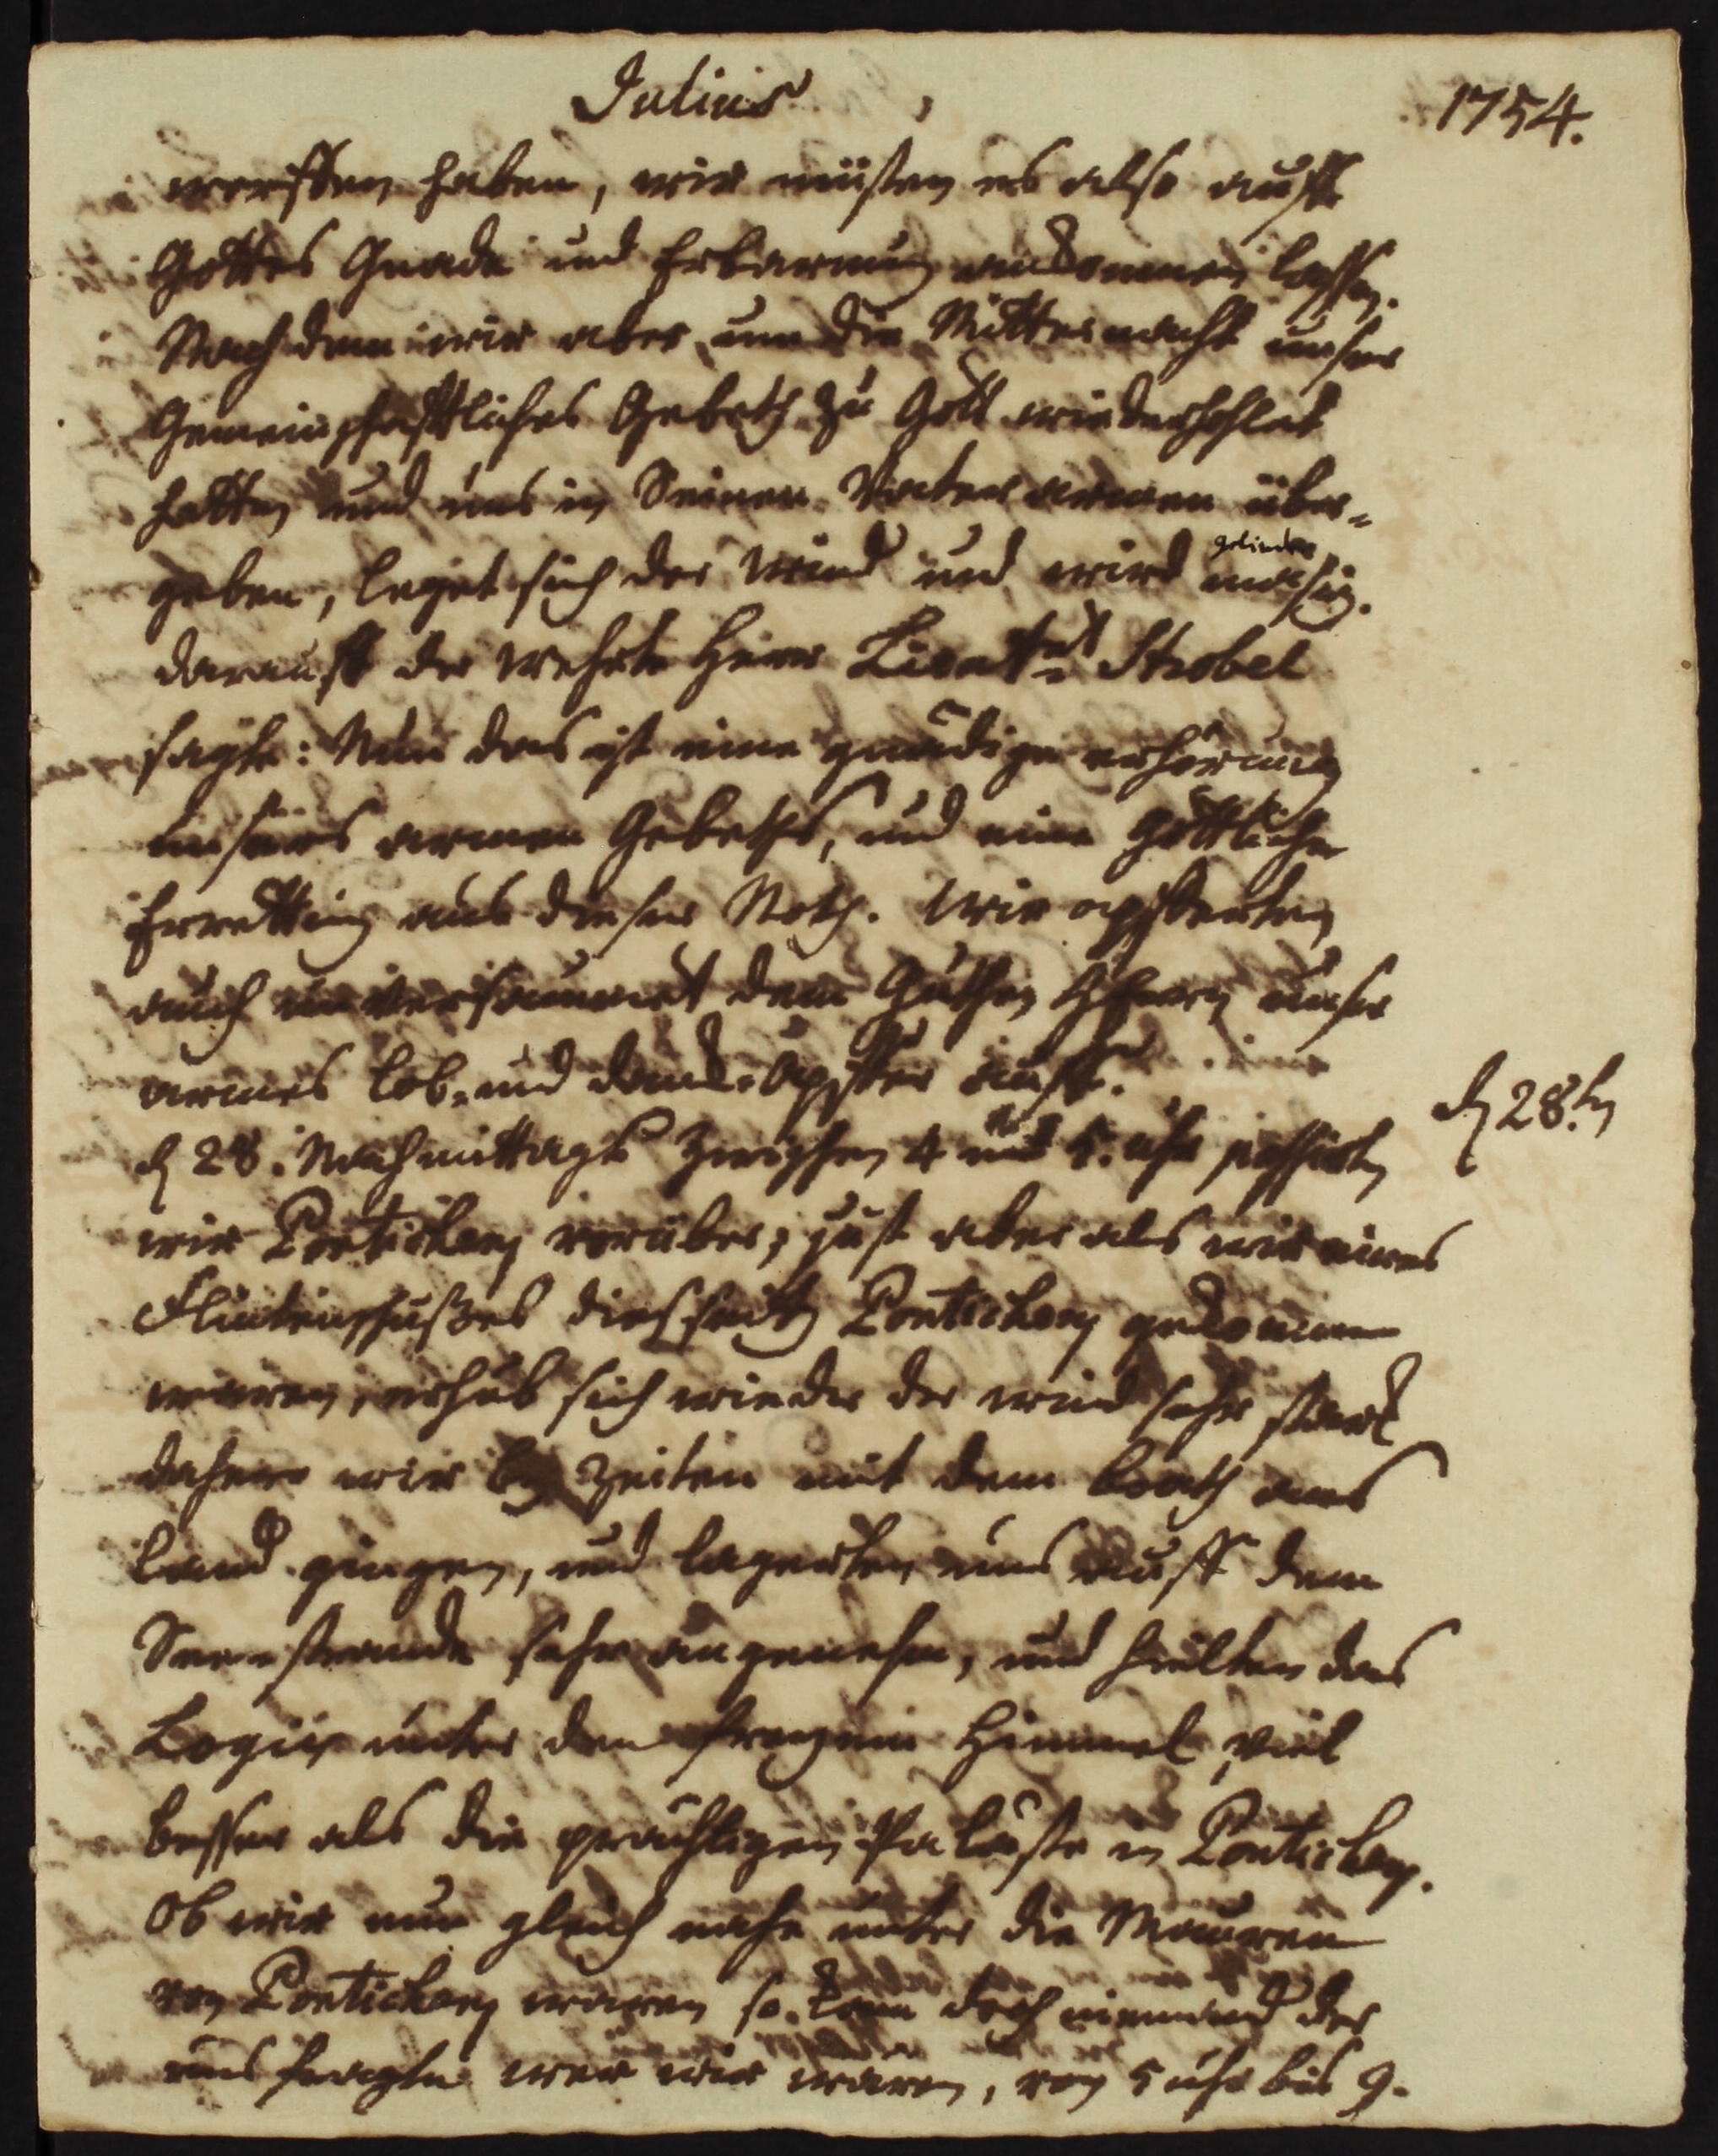 Julius
1754.
werffen haben, wir müsten es also auff
Gottes Gnade und Erbarmung ankommen lassen.
Nachdem wir aber um die Mitternacht unser
Gemeinschafftliches Gebeth zu Gott wiederhohlet
hatten und uns in Seinen Vater armen über-
geben, leget sich der Wind und wird mäsig.
gelinder
darauff der Wehrte Herr Lieutnt Strobel
sagte: Nun das ist eine gnädige erhörung
unsers armen Gebeths, und eine göttliche
Errettung aus dieser Noth. Wir opfferten
auch unversäumet dem Guthen HErrn unser
armes lob- und dank-Opffer auff.
d 28. Nachmittags zwischen 4 und 5. uhr passirten
d 28.ten
wir Pontichery vorüber; just aber als wir eines
Flintenschußes diesseits Pontichery gekommen
waren, erhub sich wieder der wind sehr stark
dahero wir bey Zeiten mit dem booth ans
land gingen, und lagerten uns auff dem
See-strande sehr angenehm, und hielten das
Logis unter dem freyen Himmel viel
besser als die prächtigen Paläste in Pontichery.
Ob wir nun gleich nahe unter die Mauren
von Pontichery waren so kam doch niemand der
uns fragte wer wir wären, von 5 uhr bis 9.